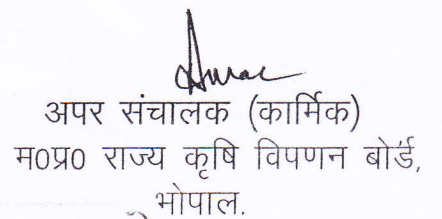 अपर संचालक (कार्मिक)
म0प्र0 राज्य कृषि विपणन बोर्ड,
भोपाल.